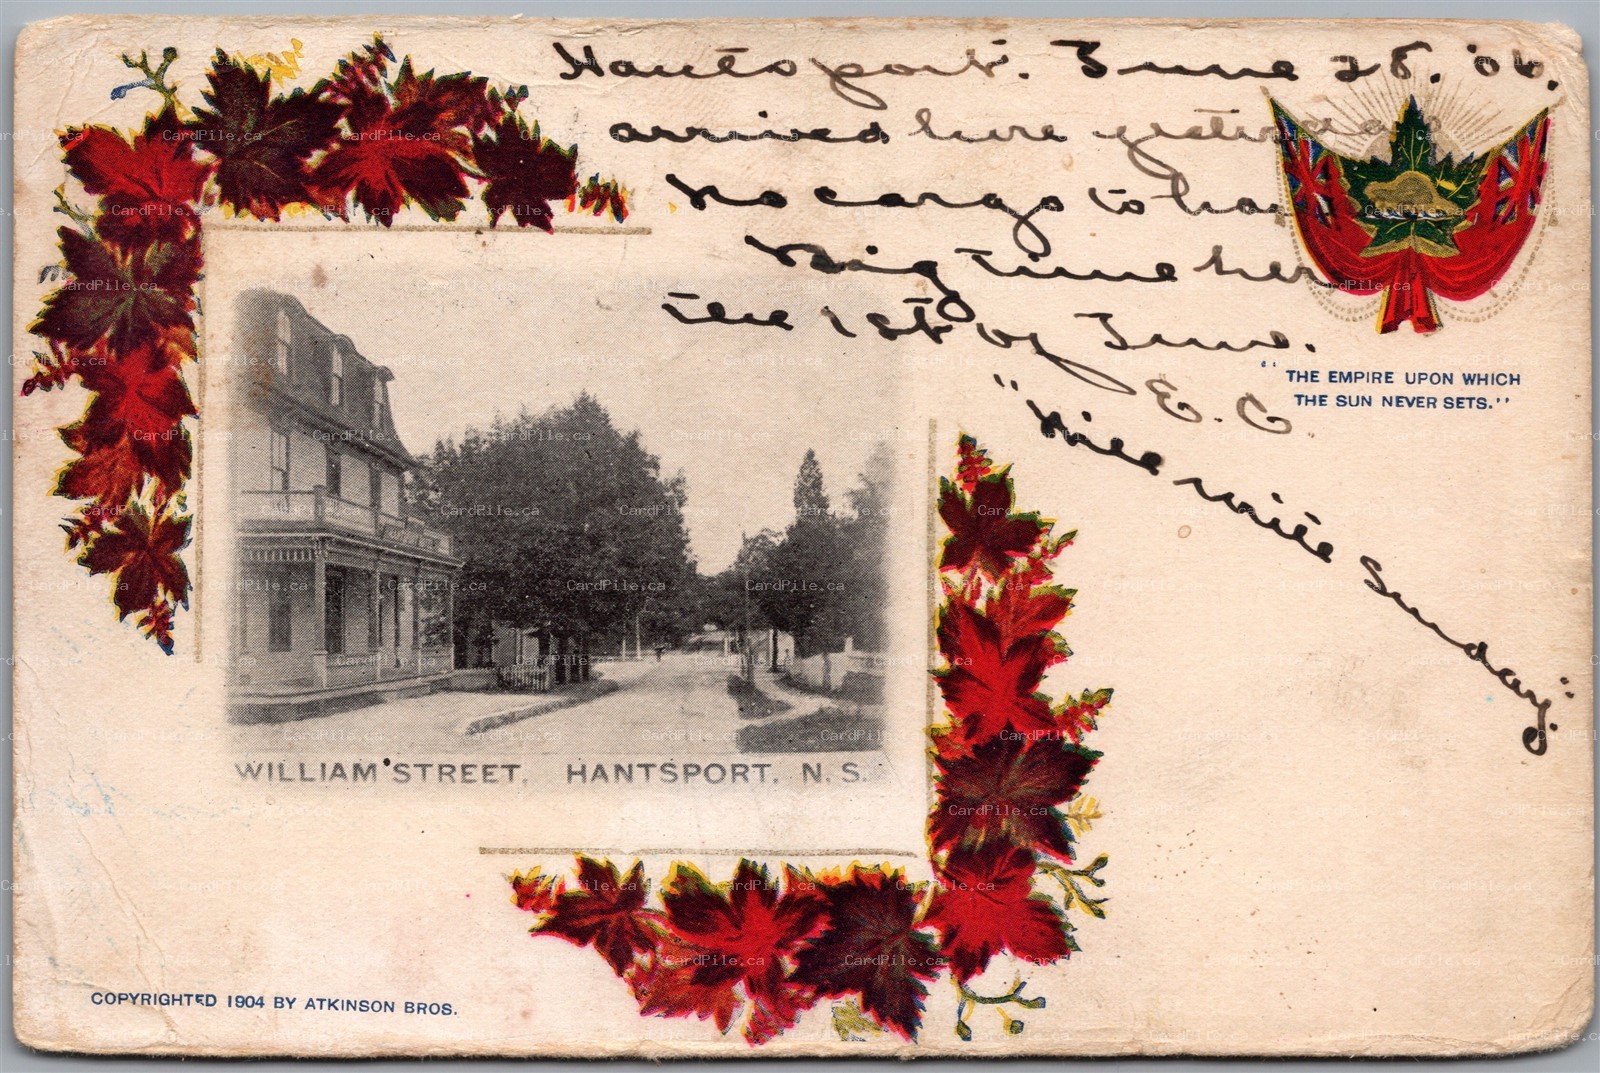 Hantsport. June 28. '06.
arrived here yesterday
no cargo to hand
Big time here
the 1st of June.
E. C.
"Will write Sunday."
"THE EMPIRE UPON WHICH
THE SUN NEVER SETS."
WILLIAM STREET, HANTSPORT, N. S.
COPYRIGHTED 1904 BY ATKINSON BROS.
CardPile.ca